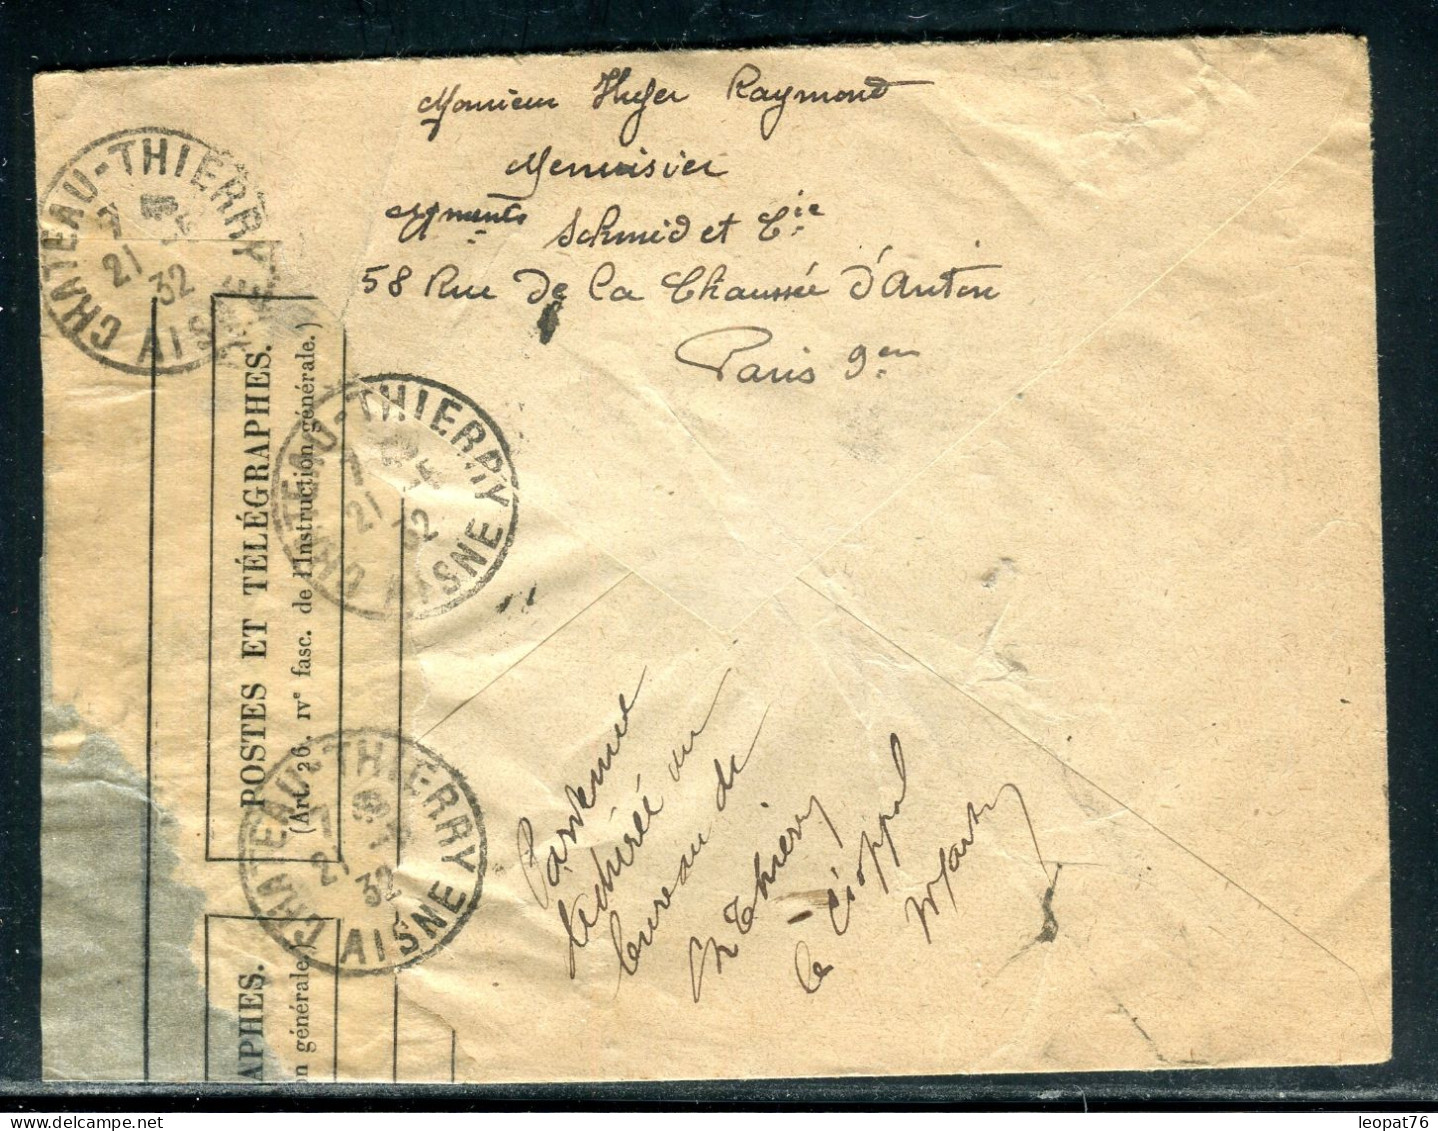 Monsieur Huyer Raymond
Menuisier
Schmid et Cie
58 Rue de la Chaussée d'Antin
Paris 9em
CHATEAU-THIERRY
7
21 32
AISNE
CHATEAU-THIERRY
7
21 32
AISNE
CHATEAU-THIERRY
7
21 32
AISNE
POSTES ET TÉLÉGRAPHES.
(Art. 26, IVe fasc. de l'Instruction générale.)
APHES.
on générale.)
Parvenue
déchirée au
bureau de
Thierry
le
leopat76